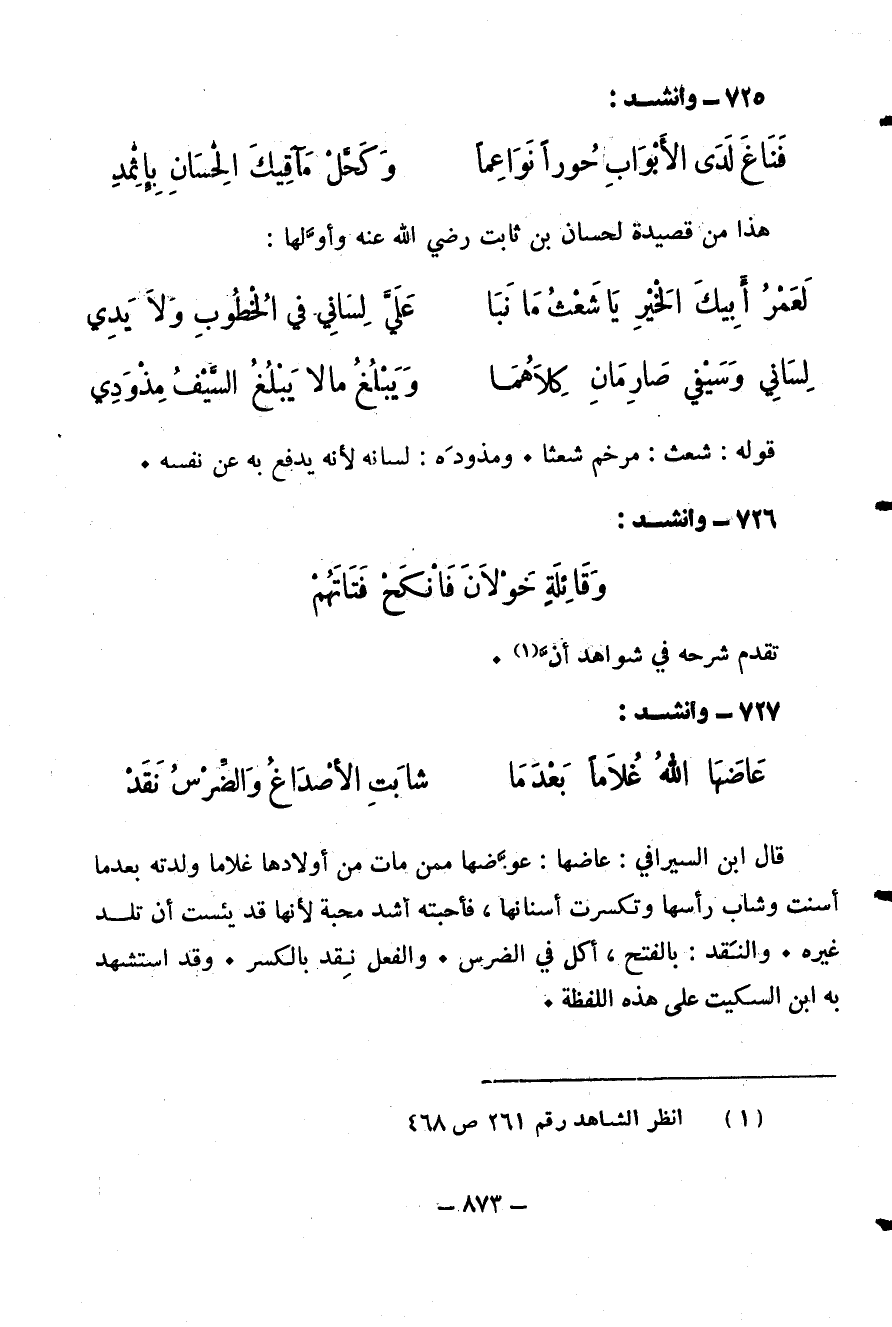 ٧٢٥ ــ وأنشــد :
فَنَاغَ لَدَى الأَبْوَابِ حُوراً نَوَاعِماً وَكَحِّلْ مَآقِيكَ الحِسَانِ بِإِثْمِدِ
هذا من قصيدة لحسان بن ثابت رضي الله عنه وأوَّلها :
لَعَمْرُ أَبِيكَ الخَيْرِ يَا شَعْثُ مَا نَبَا عَلَيَّ لِسَانِي في الخُطُوبِ وَلاَ يَدِي
لِسَانِي وَسَيْفِي صَارِمَانِ كِلاَهُمَا وَيَبْلُغُ مالا يَبْلُغُ السَّيْفُ مِذْوَدِي
قوله : شعث : مرخم شعثا ٠ ومذوده : لسانه لأنه يدفع به عن نفسه ٠
٧٢٦ ــ وأنشــد :
وَقَائِلَةٍ خَوْلاَنَ فَانْكَحْ فَتَاتَهُمْ
تقدم شرحه في شواهد أنّ(١) ٠
٧٢٧ ــ وأنشــد :
عَاضَهَا اللهُ غُلاَماً بَعْدَمَا شابَتِ الأصْدَاغُ وَالضِّرْسُ نَقَدْ
قال ابن السيرافي : عاضها : عوَّضها ممن مات من أولادها غلاما ولدته بعدما
أسنت وشاب رأسها وتكسرت أسنانها ، فأحبته أشد محبة لأنها قد يئست أن تلــد
غيره ٠ والنَقد : بالفتح ، أكل في الضرس ٠ والفعل نِقد بالكسر ٠ وقد استشهد
به ابن السكيت على هذه اللفظة ٠
(١) انظر الشاهد رقم ٢٦١ ص ٤٦٨
ــ ٨٧٣ ــ